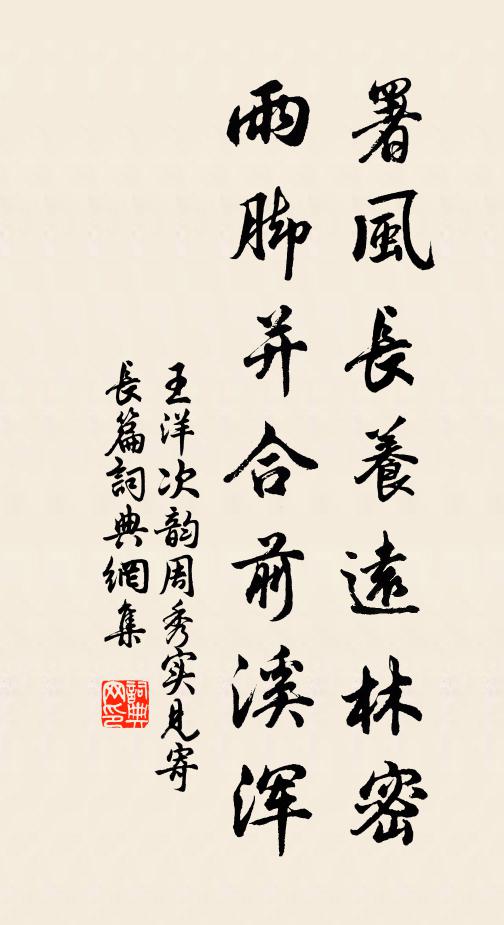 署風長養遠林密
雨脚并合前溪浑
王洋次韵周秀实見寄
長篇詞典網集
詞典
网印